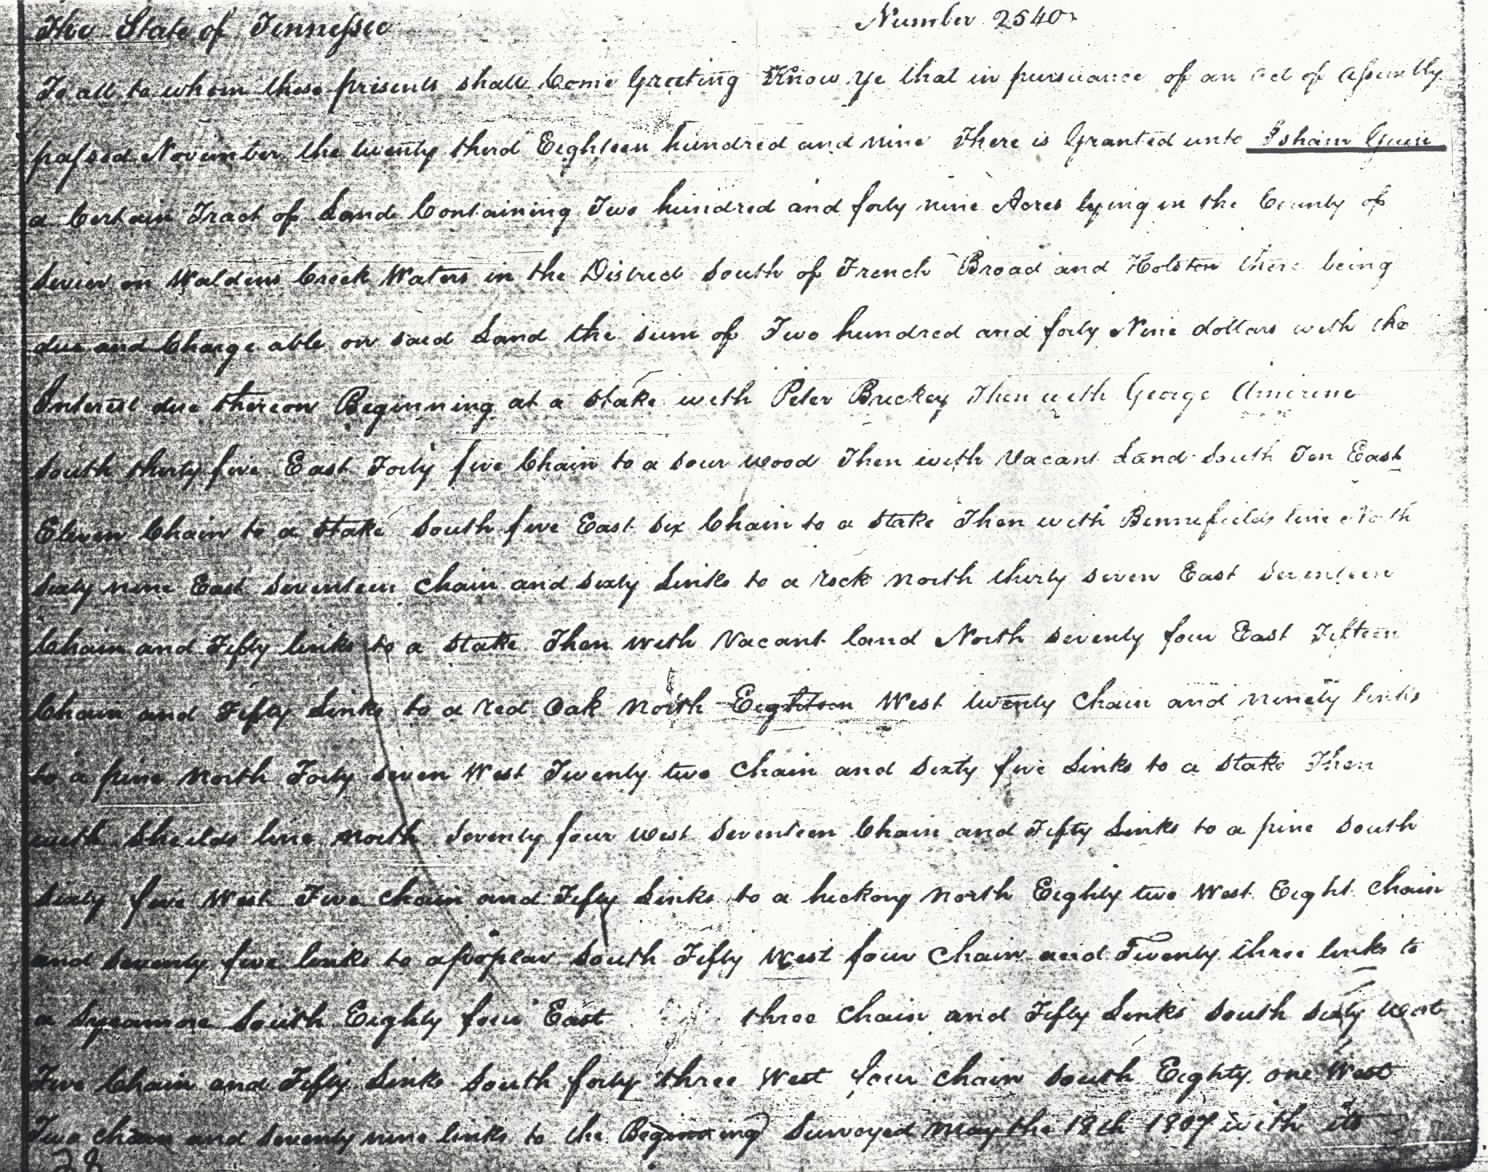 The State of Tennessee Number 2540
To all to whom these presents shall Come Greeting Know ye that in pursuance of an act of Assembly
passed November the twenty third Eighteen hundred and nine There is Granted unto Isham Guin
a Certain Tract of Land Containing Two hundred and forty nine Acres lying in the County of
Sevier on Waldens Creek Waters in the District South of French Broad and Holston there being
due and Charge able on said Land the sum of Two hundred and forty Nine dollars with the
Interest due thereon Beginning at a Stake with Peter Brickey Then with George
South thirty five East Forty five Chain to a sour wood Then with Vacant Land South Ten East
Eleven Chain to a Stake South five East Six Chain to a Stake Then with Bennefields line North
Sixty nine East Seventeen Chain and Sixty Links to a rock North thirty seven East Seventeen
Chain and Fifty links to a Stake Then with Vacant land North seventy four East Fifteen
Chain and Fifty Links to a red Oak North Eighteen West twenty Chain and ninety links
to a pine North Forty seven West Twenty two Chain and Sixty five Links to a Stake Then
with Sheilds line North Seventy four West Seventeen Chain and Fifty Links to a pine South
Sixty five West Five Chain and Fifty Links to a hickory North Eighty two West Eight Chain
and Seventy five links to a poplar South Fifty West four Chain and Twenty three links to
a Sycamore South Eighty four East three Chain and Fifty Links South Sixty West
Five Chain and Fifty Links South forty three West four Chain South Eighty one West
Two chain and seventy nine links to the Beginning Surveyed May the 18th 1807 with its
28